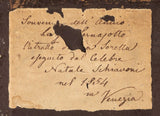 Souvenir dell' Amico
la Bernajotto
Ritratto della Sorella
eseguito dal Celebre
Natale Schiavoni
nel 1824
in Venezia.